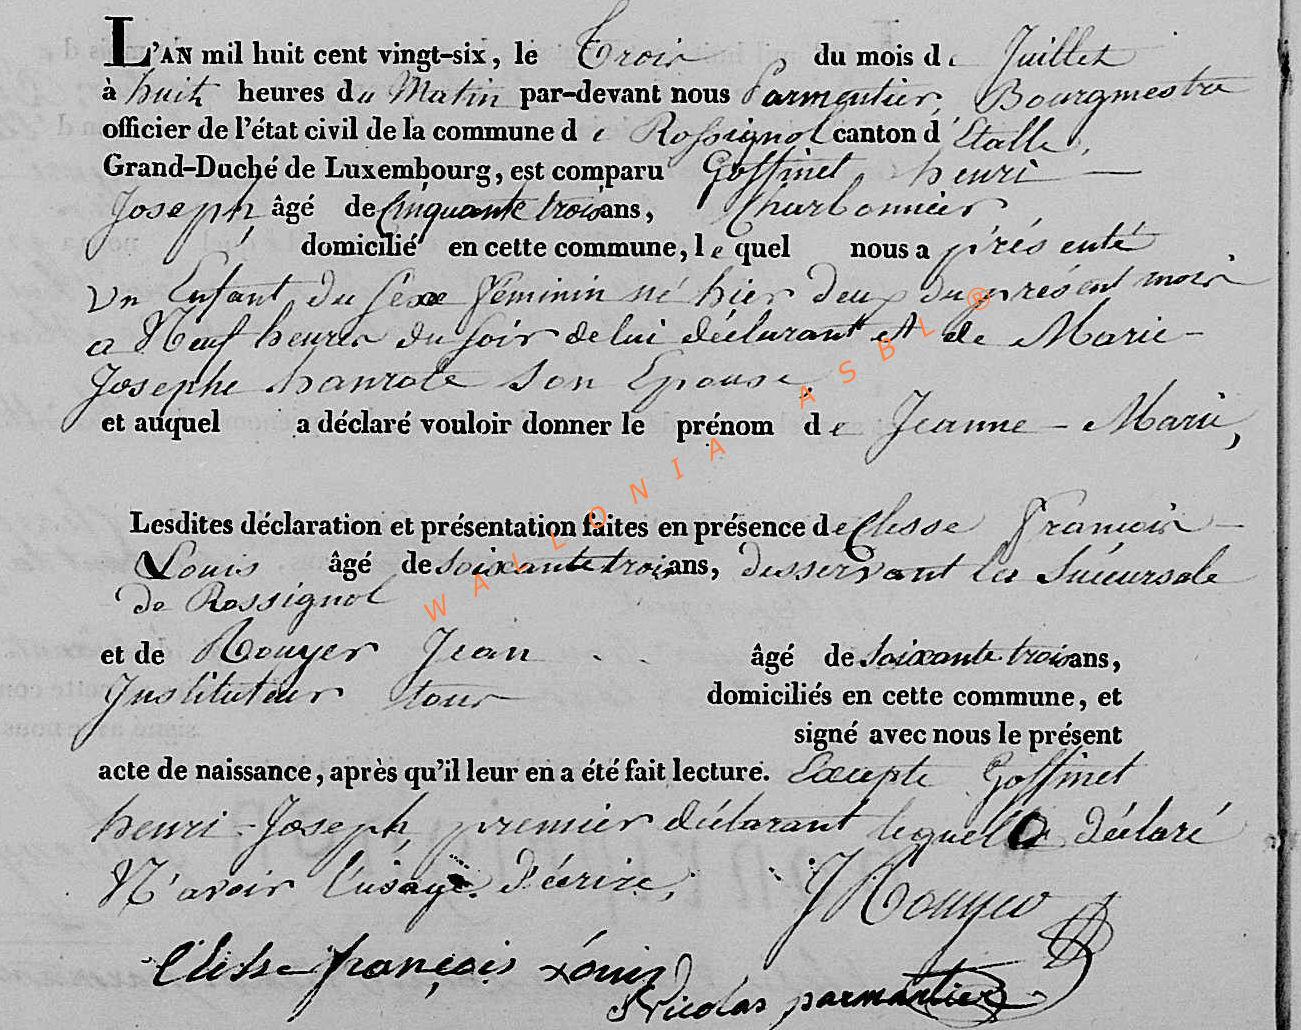 L'AN mil huit cent vingt-six, le Trois du mois de Juillet
à huit heures du Matin par-devant nous Parmentier, Bourgmestre
officier de l'état civil de la commune de Rossignol canton d'Etalle,
Grand-Duché de Luxembourg, est comparu Goffinet henri
Joseph âgé de Cinquante trois ans, Charbonnier
domicilié en cette commune, lequel nous a présenté
Un Enfant du Sexe féminin né hier deux du présent mois
a Neuf heures du Soir de lui déclarant et de Marie
Josephe hanrote Son Epouse,
et auquel a déclaré vouloir donner le prénom de Jeanne - Marie,
Lesdites déclaration et présentation faites en présence de Clesse François
Louis âgé de soixante trois ans, desservant la Succursale
de Rossignol
et de Rouyer Jean âgé de soixante trois ans,
Instituteur tous domiciliés en cette commune, et
signé avec nous le présent
acte de naissance, après qu'il leur en a été fait lecture. Excepte Goffinet
henri-Joseph, premier déclarant lequel a déclaré
N'avoir l'usage d'écrire,
J Rouyer
Clesse françois Louis
Nicolas parmentier
WALLONIA ASBL ®